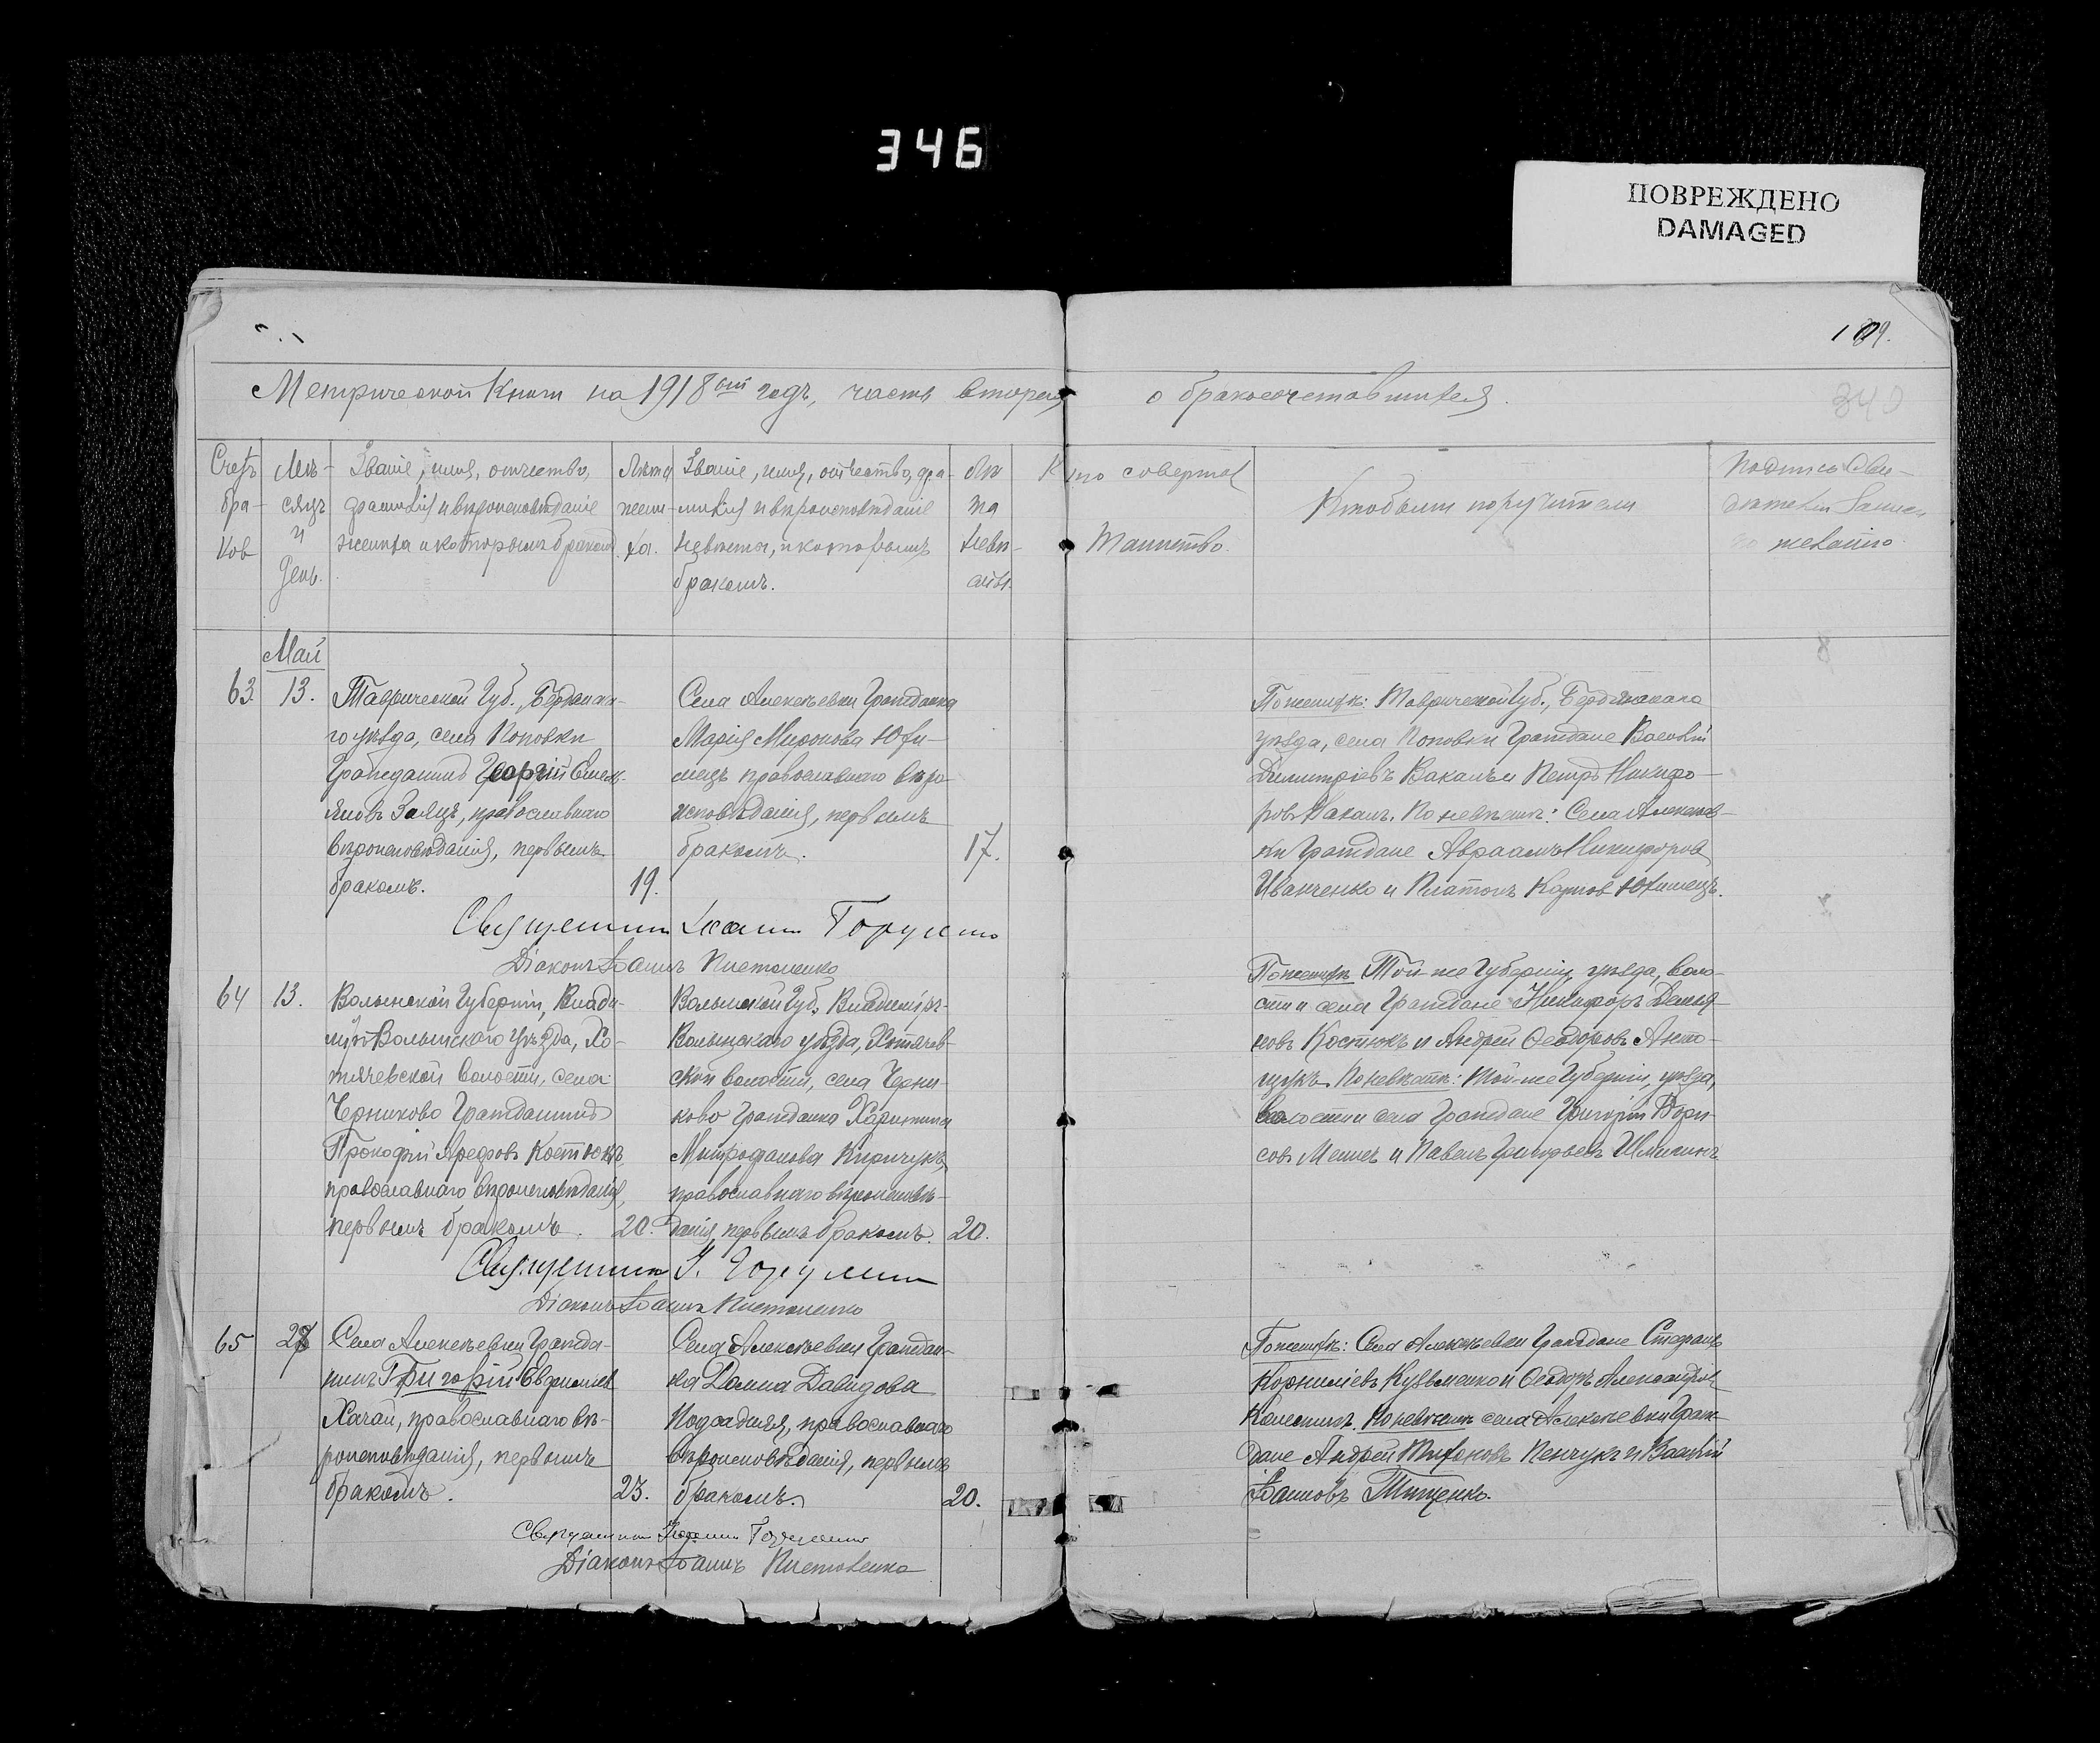 346
ПОВРЕЖДЕНО
DAMAGED
109.
340
Метрической Книги на 1918ый годъ, часть вторая,
о бракосочетавшихся.
Счетъ
бра-
ков
Мѣ-
сяцъ
и
день.
Званіе, имя, отчество,
фамилія и вѣроисповѣданіе
жениха и которымъ бракомъ
Лѣта
жени-
ха.
Званіе, имя, отчество, фа-
милія и вѣроисповѣданіе
невѣсты, и которымъ
бракомъ.
Лѣ
та
невѣ-
сты.
Кто совершал
Таинство.
Кто были поручители
Подпись сви-
дѣтелей записи
по желанію.
Май
63.
13.
Таврической Губ., Бердянска-
го уѣзда, села Поповки
Гражданинъ Георгій Емель-
яновъ Заяцъ, православнаго
вѣроисповѣданія, первымъ
бракомъ.
19.
Села Алексѣевки Гражданка
Марія Миронова Юхи-
мецъ православнаго вѣро-
исповѣданія, первымъ
бракомъ.
17.
По женихѣ: Таврической Губ., Бердянскаго
уѣзда, села Поповки Граждане Василій
Димитріевъ Вакалъ и Петръ Никифо-
ровъ Вакал. По невѣстѣ: Села Алексѣев-
ки Граждане Авраамъ Никифоров
Иванченко и Платонъ Карпов Юхимецъ.
Священник Іоанн
Діаконъ Іоаннъ Пистоленко
64
13.
Волынской Губерніи, Влади-
міръ Волынского уѣзда, Хо-
тячевской волости, села
Черниково Гражданинъ
Прокофій Арефовъ Костюкъ,
православнаго вѣроисповѣданія,
первымъ бракомъ.
20.
Волынской Губ., Владиміръ-
Волынскаго уѣзда, Хотячев-
ской волости, села Черни-
ково Гражданка Харитина
Митрофанова Киричукъ,
православнаго вѣроисповѣ-
данія, первымъ бракомъ.
20.
По женихѣ Той-же Губерніи, уѣзда, воло-
сти и села Граждане Никифоръ Демья-
новъ Костюкъ и Андрей Ѳеодоровъ Анто-
щукъ. По невѣстѣ: Той-же Губерніи, уѣзда,
волости и села Граждане Григорій Бори-
совъ и Павелъ Григорьевъ
Священник І.
Діаконъ Іоаннъ Пистоленко
65
27
Села Алексѣевки Гражда-
нинъ Григорій Евфиміев
Хачай, православнаго вѣ-
роисповѣданія, первымъ
бракомъ.
23.
Села Алексѣевки Граждан-
ка Домна Давидова
Подгадняя, православнаго
вѣроисповѣданія, первымъ
бракомъ.
20.
По женихѣ: Села Алексѣевки Граждане Стефанъ
Корниліевъ Кузьменко и Ѳеодоръ Александров
Колесникъ. По невѣстѣ села Алексѣевки Граж-
дане Андрей Тихоновъ Пенчукъ и Василій
Іоанновъ Тищенко.
Священник Іоанн
Діаконъ Іоаннъ Пистоленко